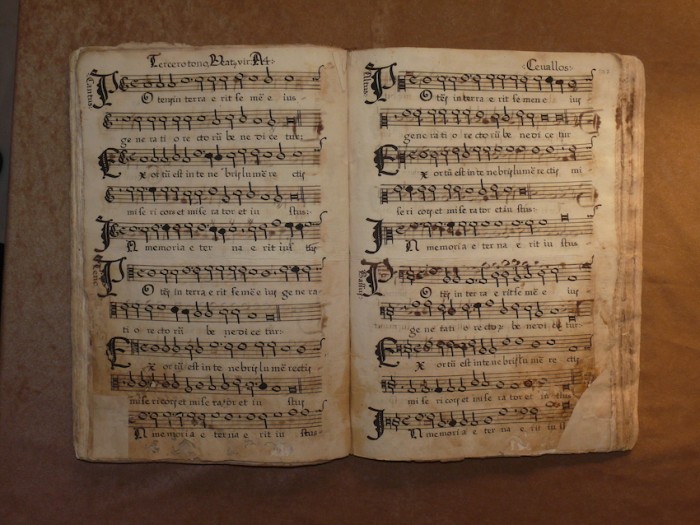 Tercero tono, Beat, vir.
Cantus.
O tens in terra e rit se mē e ius
ge ne ra ti o re cto rū be ne di ce tur:
Ex or tū est in te ne bris lu mē re ctis
mi se ri cors et mi se ra tor et iu stus:
In memoria e ter na e rit ius tus
O tēs in terra e rit se mē e ius ge ne ra-
ti o re cto rū be ne di ce tur:
Ex or tū est in te ne bris lu mē rectis
mi se ri cors et mi se ra tor et iu stus
In memoria e ter na e rit iu stus
Ceuallos:
Altus.
Po tēs in terra e rit se men e ius
ge ne ra ti o re cto rū be ne di ce tur
Ex or tū est in te ne bris lu mē rectis mi-
se ri cors et mi se ra tor et iu stus
In memoria e ter na e rit iu stus
Po tēs in terra e rit se mē e ius
ge ne ra ti o re cto be ne di ce tur.
Ex or tū est in te ne bris lu mē re ctis
mi se ri cors et mi se ra tor et iu stus
In memoria e ter na e rit iu